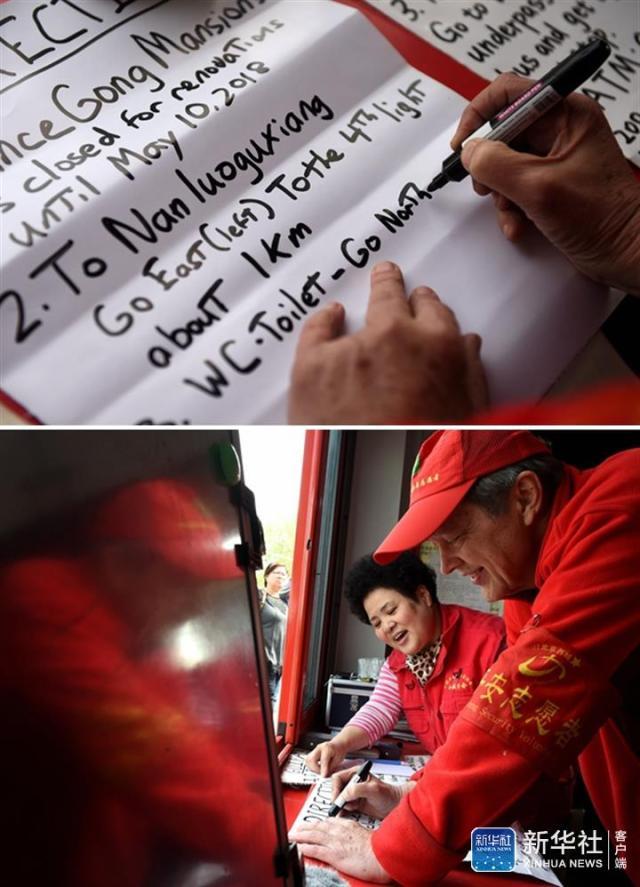 RECTI
nce Gong Mansion
s closed for renovations
until May 10, 2018
2. To Nanluoguxiang
Go East (left) To the 4th light
about 1km
3. WC. Toilet - Go North
3.
Go to
underpass
bus and get
ATM
200
DIRECTI
安志愿者
Security Volun
新华社
XINHUA NEWS
新华社
XINHUA NEWS
客户端